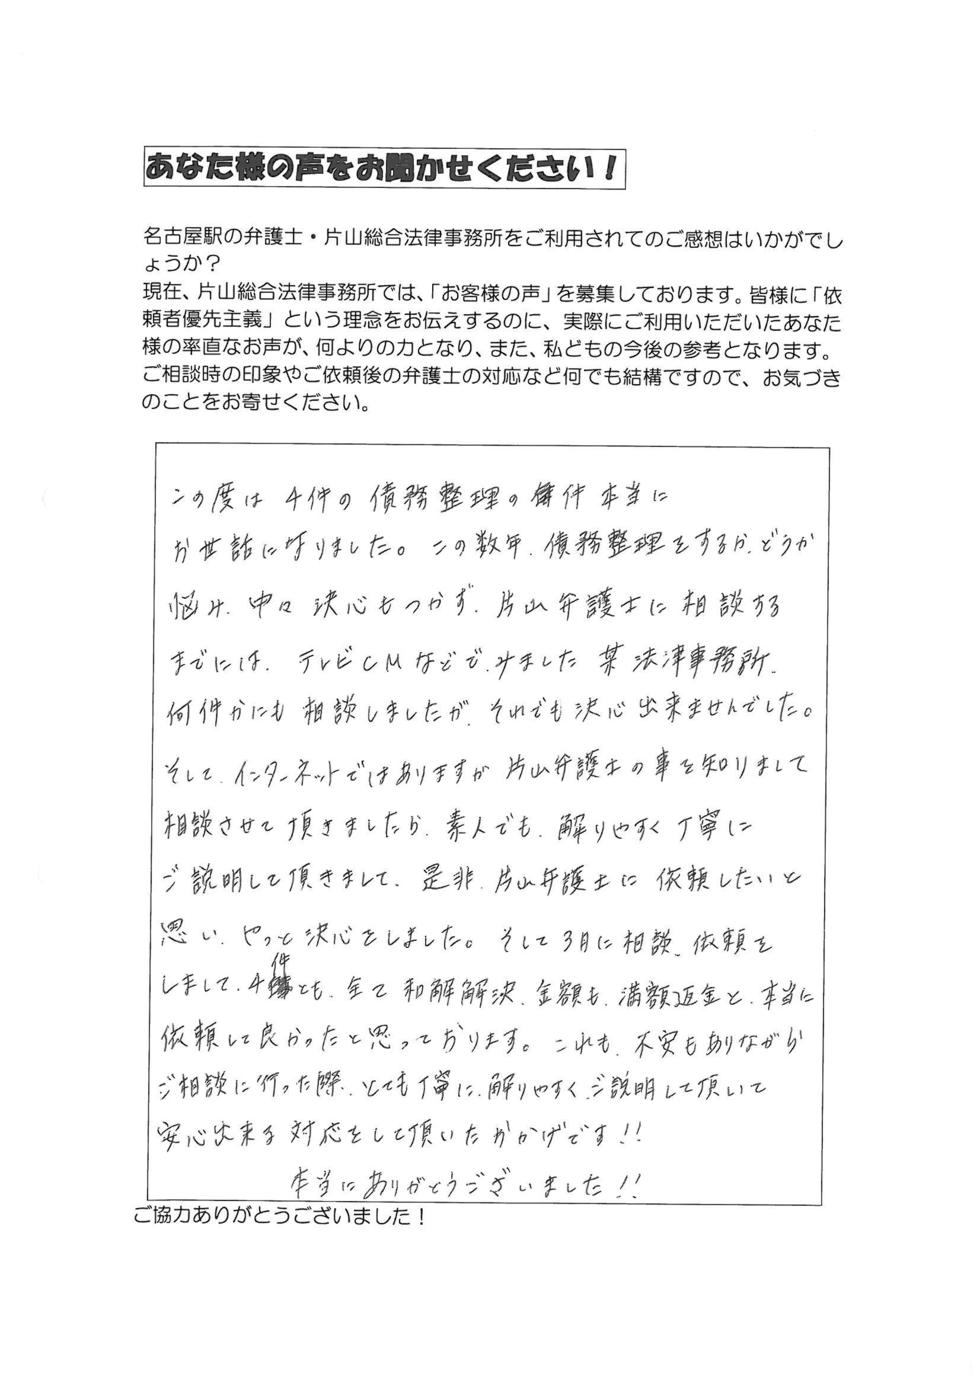 あなた様の声をお聞かせください！
名古屋駅の弁護士・片山総合法律事務所をご利用されてのご感想はいかがでし
ょうか？
現在、片山総合法律事務所では、「お客様の声」を募集しております。皆様に「依
頼者優先主義」という理念をお伝えするのに、実際にご利用いただいたあなた
様の率直なお声が、何よりの力となり、また、私どもの今後の参考となります。
ご相談時の印象やご依頼後の弁護士の対応など何でも結構ですので、お気づき
のことをお寄せください。
この度は 4件の 債務整理の 件 本当に
お世話になりました。この数年、債務整理をするか、どうか
悩み、中々 決心もつかず、片山弁護士に 相談する
までには、テレビCMなどで、みました 某 法律事務所、
何件かにも 相談しましたが、それでも決心出来ませんでした。
そして、インターネットではありますが 片山弁護士の事を知りまして
相談させて 頂きましたら、素人でも、解りやすく丁寧に
ご説明して頂きまして、是非、片山弁護士に 依頼したいと
思い、やっと決心をしました。そして3月に相談、依頼を
しまして、4件とも、全て 和解解決、金額も、満額返金と、本当に
依頼して良かったと思っております。これも、不安もありながら
ご相談に行った際、とても丁寧に、解りやすく、ご説明して頂いて
安心出来る 対応をして頂いたおかげです!!
本当にありがとうございました!!
ご協力ありがとうございました！